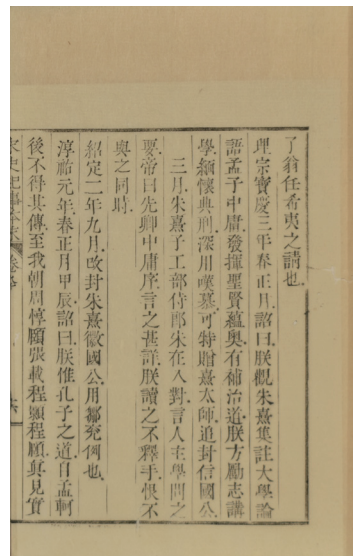 了翁任希夷之請也
理宗寶慶三年春正月詔曰朕觀朱熹集註大學論
語孟子中庸發揮聖賢蘊奥有補治道朕方勵志講
學緬懷典刑深用嘆慕可特贈熹太師追封信國公
三月朱熹子工部侍郎朱在入對言人主學問之
要帝曰先卿中庸序言之甚詳朕讀之不釋手恨不
與之同時
紹定二年九月改封朱熹徽國公用鄒兖例也
淳祐元年春正月甲辰詔曰朕惟孔子之道自孟軻
後不得其傳至我朝周惇頤張載程顥程頤真見實
宋史紀事本末